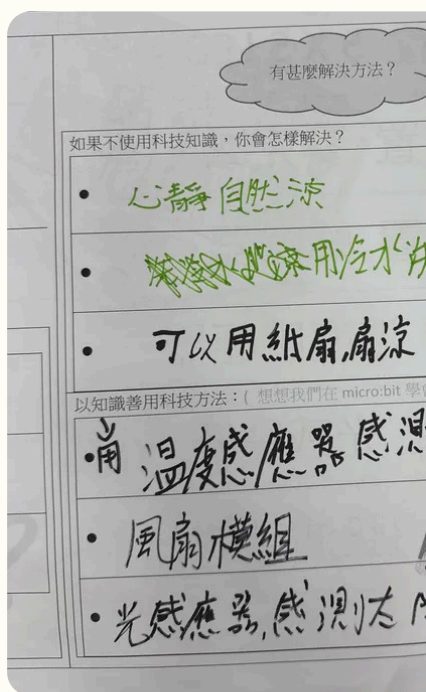 有甚麼解決方法？
如果不使用科技知識，你會怎樣解決？
• 心靜自然涼
• 用冷水
• 可以用紙扇,扇涼
以知識善用科技方法：( 想想我們在 micro:bit 學
• 用溫度感應器感測
• 風扇模組
• 光感應器,感測太